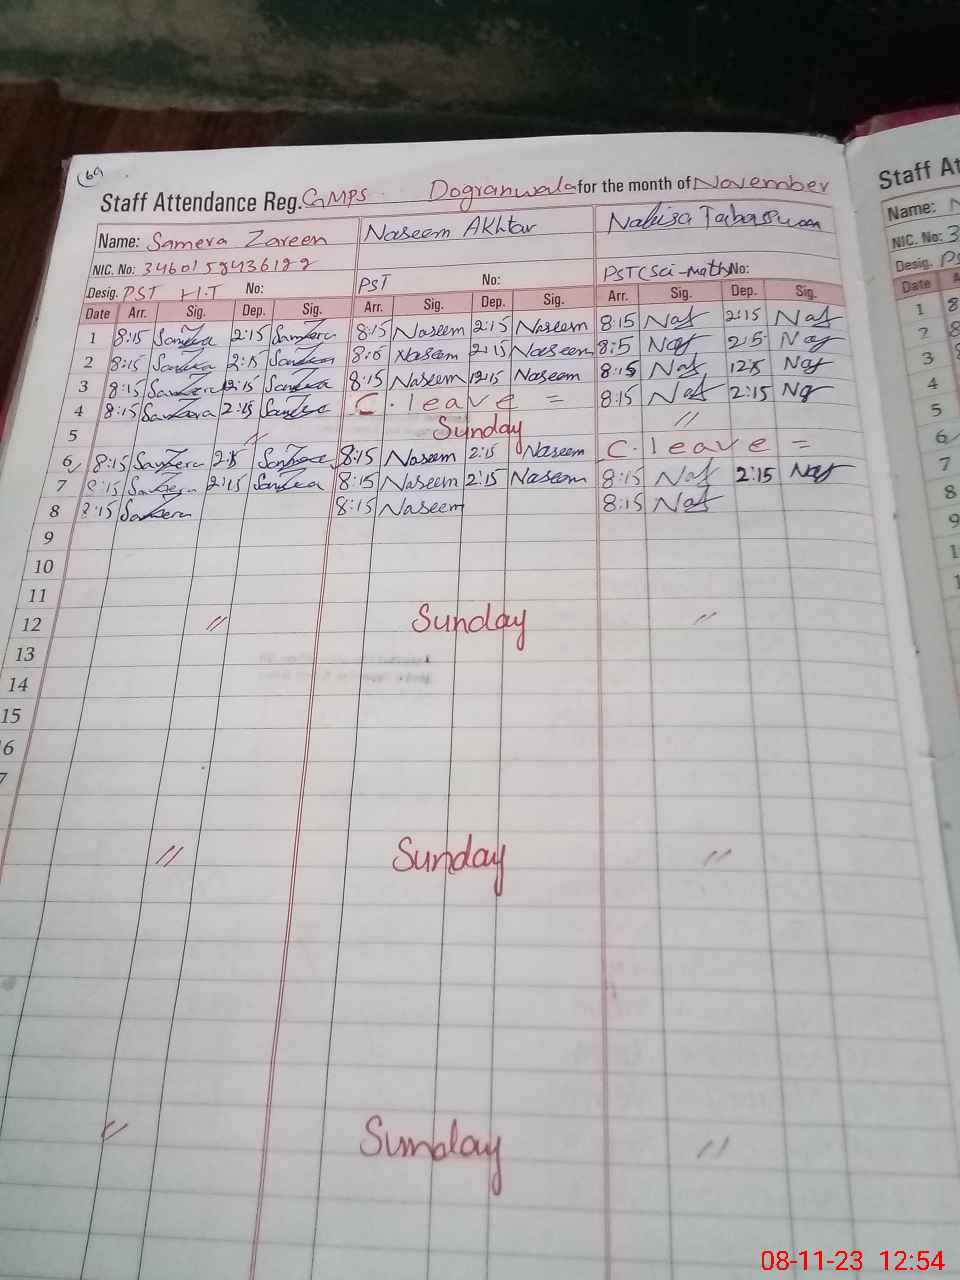 69
Staff Attendance Reg. GMPS Dogranwala for the month of November
Staff At
Name: Samera Zareen Naseem Akhtar Nahisa Tabassum
Name: N
NIC. No:
NIC. No: 3
Desig. PST H.T No: PST No: PST (Sci-math) No:
Desig. PS
Date Arr. Sig. Dep. Sig. Arr. Sig. Dep. Sig. Arr. Sig. Dep. Sig.
Date A
1 8:15 Samera 2:15 Samera 8:15 Naseem 2:15 Naseem 8:15 Naf 2:15 Naf
2 8:15 Samera 2:15 Samera Naseem 2:15 Naseem 8:5 Naf 2:5 Naf
3 8:15 Samera 12:15 Samera 8:15 Naseem 12:15 Naseem 8:15 Naf Naf
4 8:15 Samera 2:15 Samera C. leave = 8:15 Naf 2:15
5 〃 Sunday 〃
6 8:15 Samera Samera 8:15 Naseem 2:15 Naseem C. leave =
7 8:15 Samera 2:15 Samera 8:15 Naseem 2:15 Naseem 8:15 Naf 2:15 Naf
8 8:15 Samera 8:15 Naseem 8:15 Naf
9
10
11
12 〃 Sunday 〃
13
14
15
6
7
〃 Sunday 〃
〃 Sunday 〃
1
2
3
4
5
6
7
8
9
1
1
08-11-23 12:54